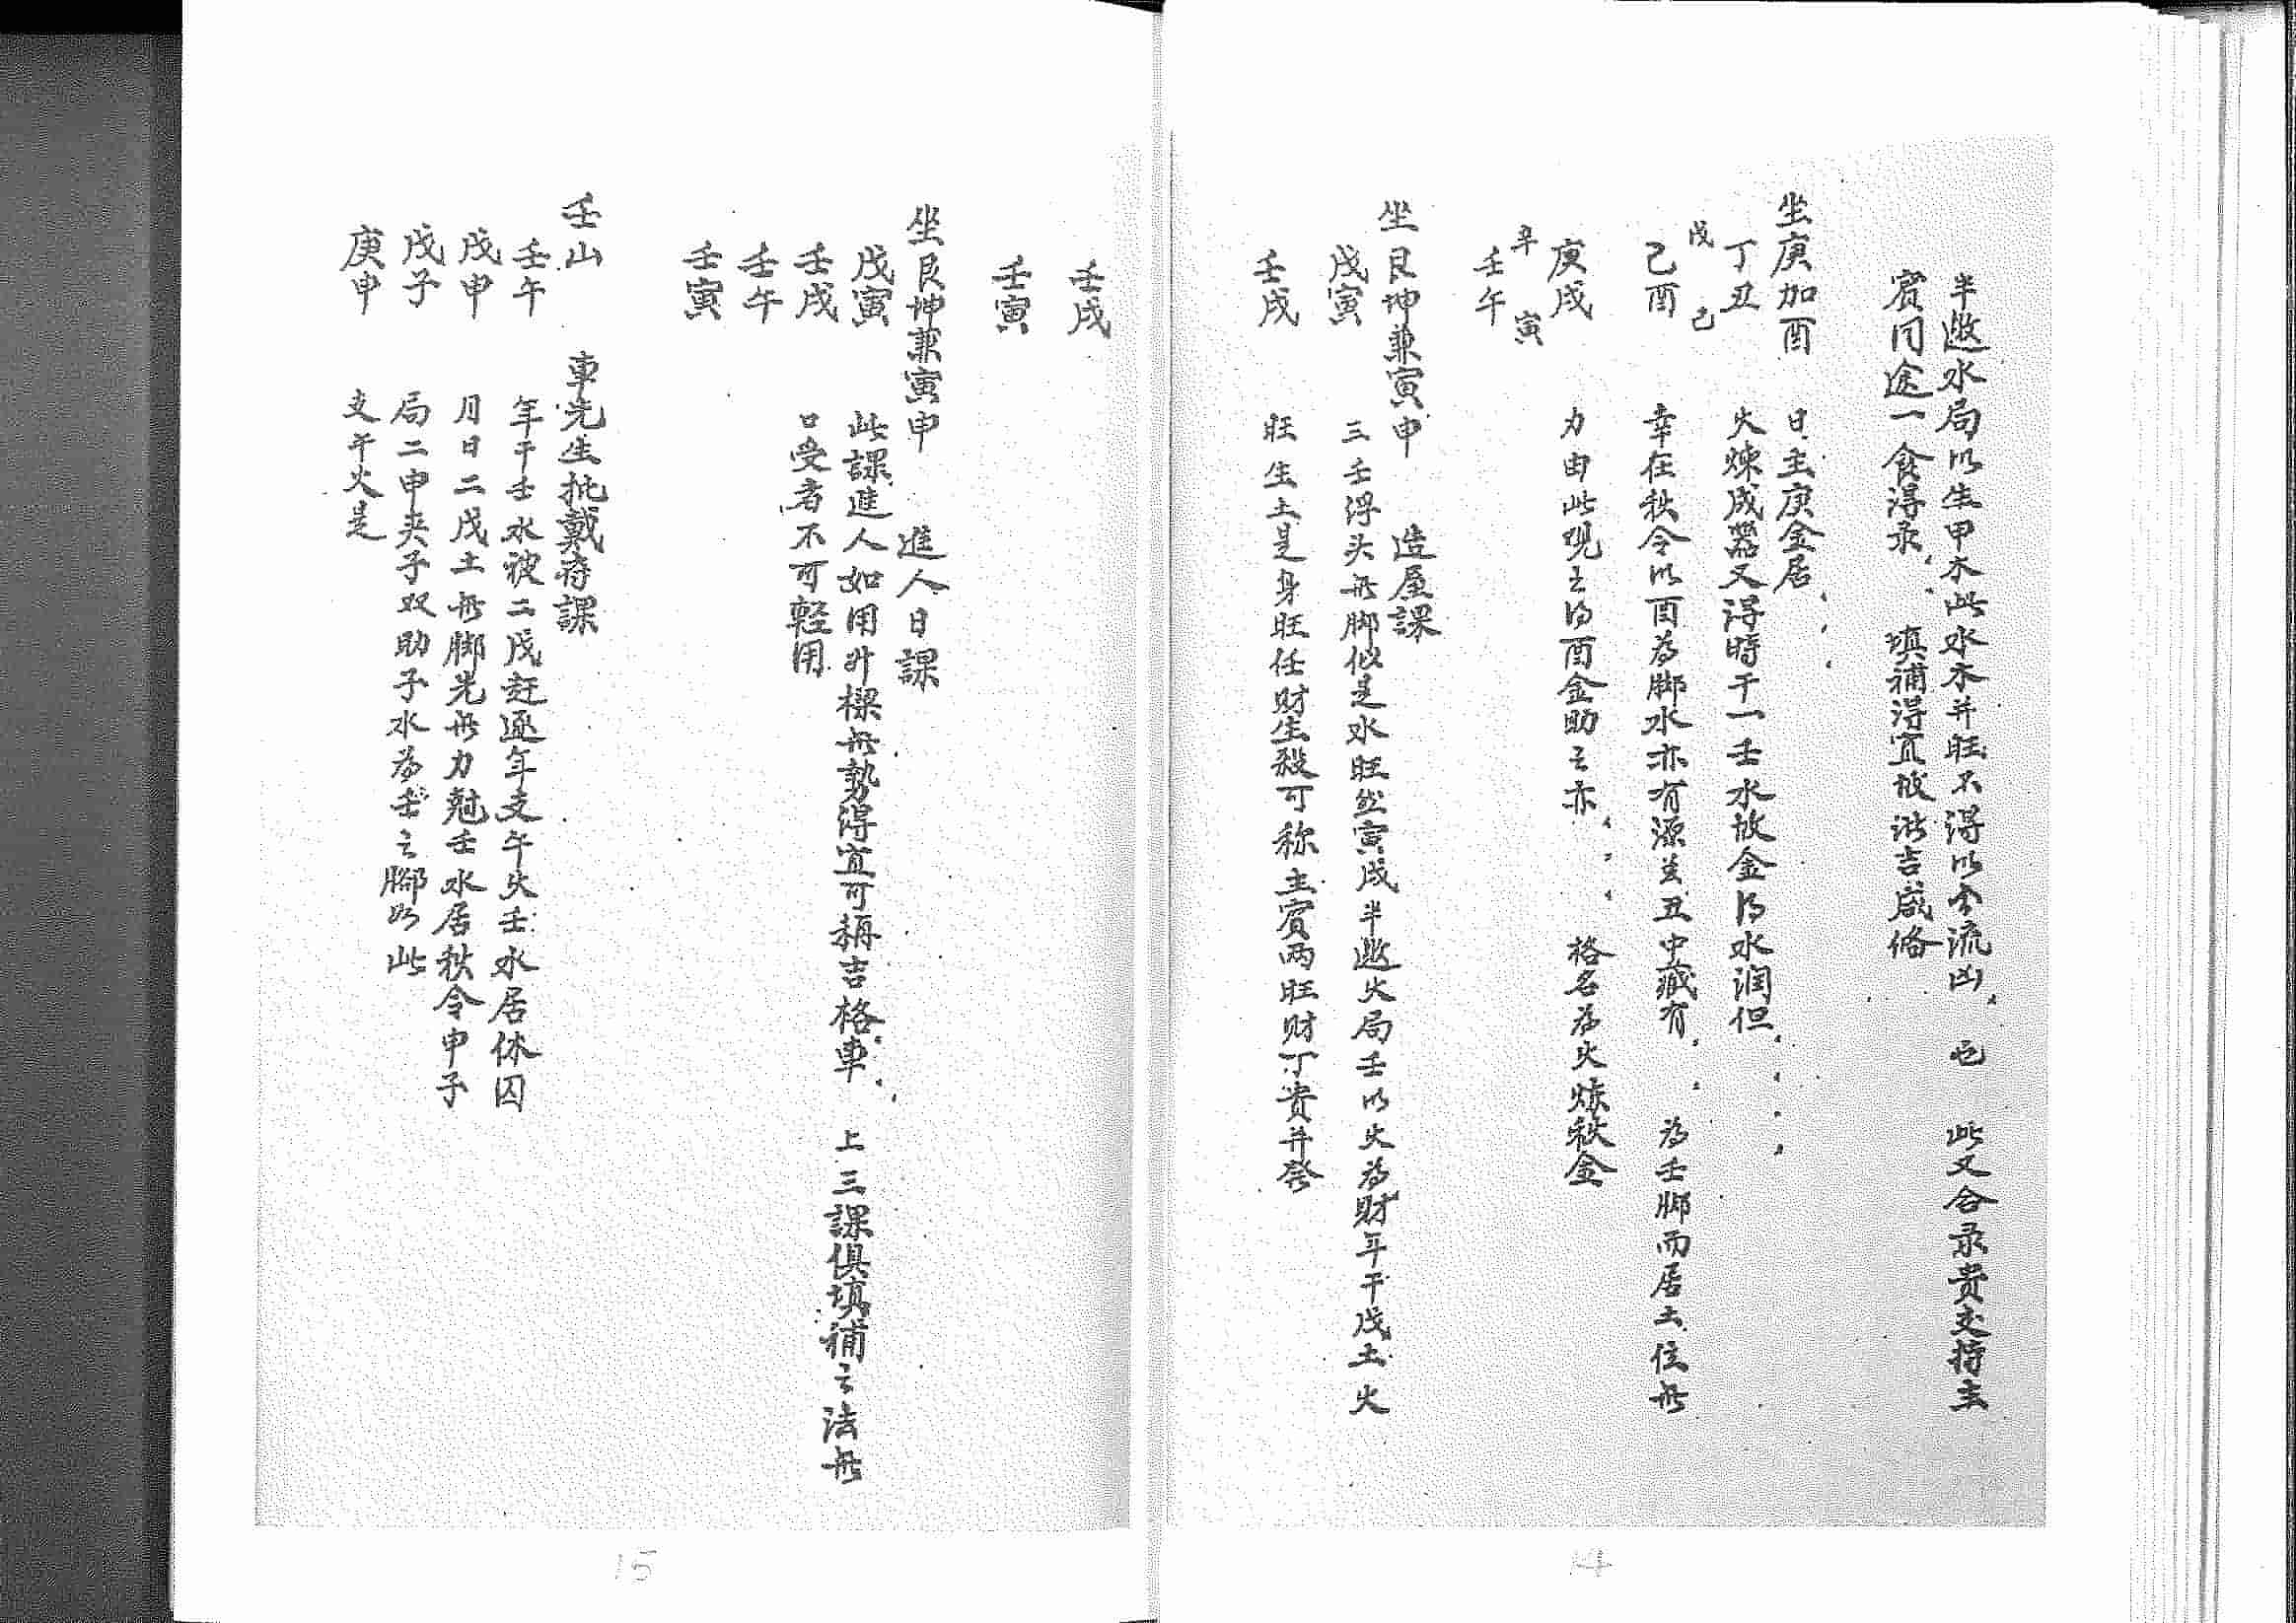 半邀水局以生甲木此水木并旺不得以会流凶 也 此又合录贵支持主
賓同途一食得录 填補得宜故謂吉咸俻
坐庚加酉 日主庚金居
丁丑 火煉成器又得時干一壬水故金得水润但
戊 己
己酉 幸在秋令以酉為脚水亦有源其丑中藏有 為壬脚而居土位無
庚戌 力由此观之得酉金助之亦 格名為火煉秋金
辛 寅
壬午
坐艮坤兼寅申 造屋課
戊寅 三壬浮头無脚似是水旺然寅戌半邀火局壬以火為财年干戊土火
壬戌 旺生土是身旺任财生殺可称主賓两旺财丁贵并發
壬戌
壬寅
坐艮坤兼寅申 進人日課
戊寅 此課進人如用升樑無勢得宜可稱吉格車 上三課俱填補之法無
壬戌 口受者不可軽用
壬午
壬寅
壬山 車先生批戴府課
壬午 年干壬水被二戊赶逐年支午火壬水居休囚
戊申 月日二戊土無脚先無力尅壬水居秋令申子
戊子 局二申夹子双助子水為壬之腳以此
庚申 支午火是
15
14